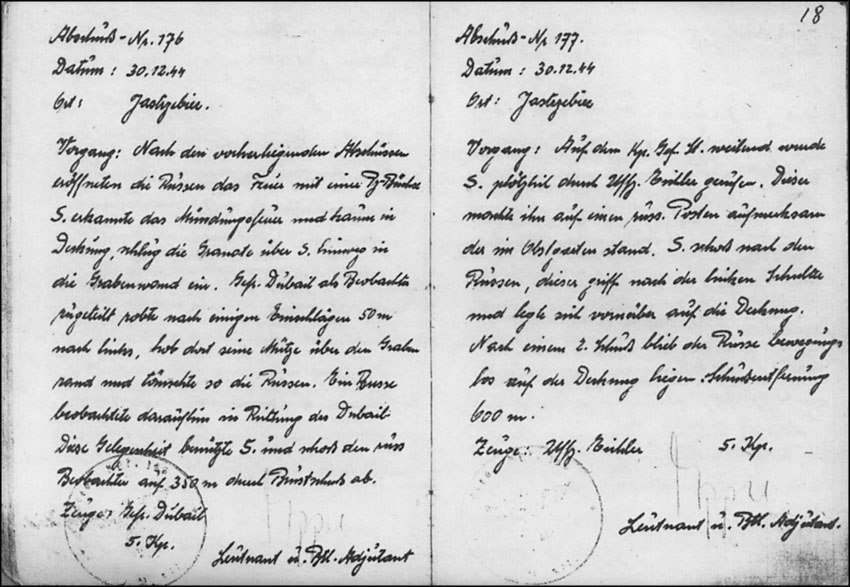 Abschuß-Nr. 176
Datum: 30.12.44
Ort: Jastrzebiec.
Vorgang: Nach den vorherliegenden Abschüssen
eröffneten die Russen das Feuer mit einer Pz-Büchse
S. erkannte das Mündungsfeuer und kaum in
Deckung, schlug die Granate über S. hinweg in
die Grabenwand ein. Gefr. Dubail als Beobachter
zugeteilt robbte nach einigen Einschlägen 50 m
nach links, hob dort seine Mütze über den Graben
rand und täuschte so die Russen. Ein Russe
beobachtete daraufhin in Richtung des Dubail.
Diese Gelegenheit benützte S. und schoß den russ
Beobachter auf 350 m durch Brustschuß ab.
Zeuge: Gefr. Dubail
5. Kp.
Leutnant u. Btl. Adjutant
18
Abschuß-Nr. 177.
Datum: 30.12.44
Ort: Jastrzebiec
Vorgang: Auf dem Kp. Gef. St. weilend wurde
S. plötzlich durch Uffz. Eichler gerufen. Dieser
machte ihn auf einen russ. Posten aufmerksam
der im Obstgarten stand. S. schoß nach dem
Russen, dieser griff nach der linken Schulter
und legte sich vornüber auf die Deckung.
Nach einem 2. Schuß blieb der Russe bewegungs
los auf der Deckung liegen. Schußentfernung
600 m.
Zeuge: Uffz. Eichler 5. Kp.
Leutnant u. Btl. Adjutant.